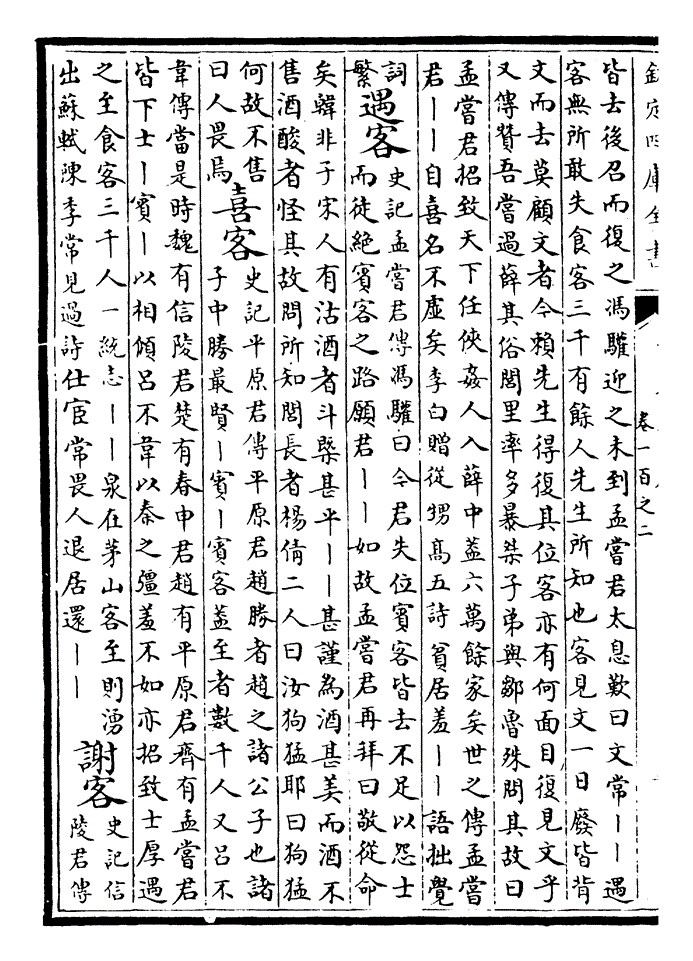 欽定四庫全書
卷一百之二
皆去後召而復之馮驩迎之未到孟嘗君太息歎曰文常——遇
客無所敢失食客三千有餘人先生所知也客見文一日廢皆背
文而去莫顧文者今賴先生得復其位客亦有何面目復見文乎
又傳贊吾嘗過薛其俗閭里率多暴桀子弟與鄒魯殊問其故曰
孟嘗君招致天下任俠姦人入薛中葢六萬餘家矣世之傳孟嘗
君——自喜名不虚矣李白贈從甥髙五詩貧居羞——語拙覺
詞
繁
遇客
史記孟嘗君傳馮驩曰今君失位賓客皆去不足以怨士
而徒絶賓客之路願君——如故孟嘗君再拜曰敬從命
矣韓非子宋人有沽酒者斗槩甚平——甚謹為酒甚美而酒不
售酒酸者怪其故問所知閭長者楊倩二人曰汝狗猛耶曰狗猛
何故不售
曰人畏焉
喜客
史記平原君傳平原君趙勝者趙之諸公子也諸
子中勝最賢—賓—賓客葢至者數千人又吕不
韋傳當是時魏有信陵君楚有春申君趙有平原君齊有孟嘗君
皆下士—賓—以相傾吕不韋以秦之彊羞不如亦招致士厚遇
之至食客三千人一統志——泉在茅山客至則湧
出蘇軾陳季常見過詩仕宦常畏人退居還——
謝客
史記信
陵君傳